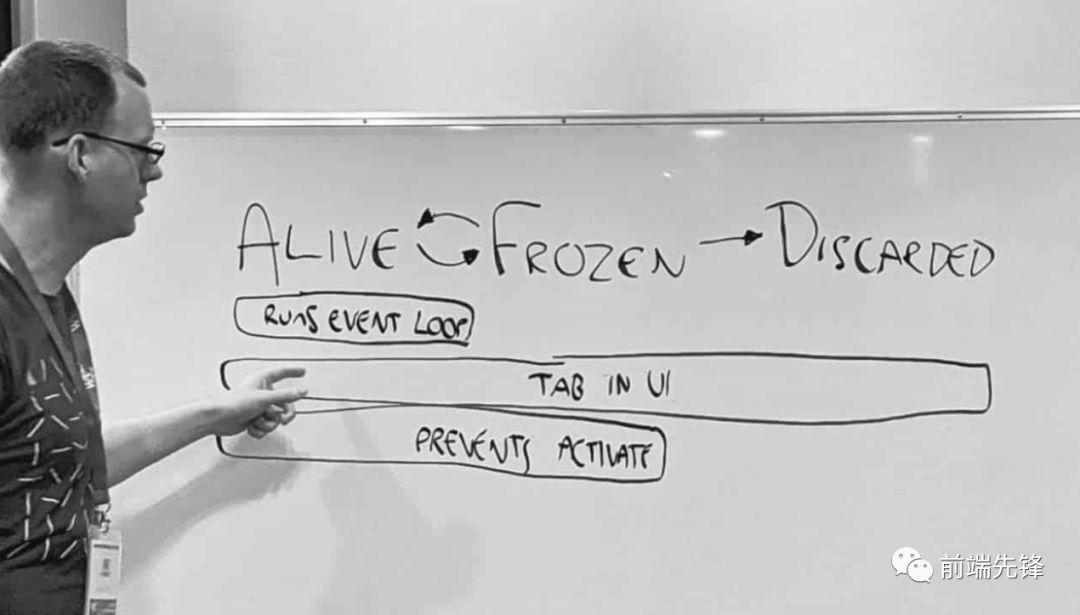 ALIVE FROZEN → DISCARDED
RUNS EVENT LOOP
TAB IN UI
PREVENTS ACTIVATE
前端先锋